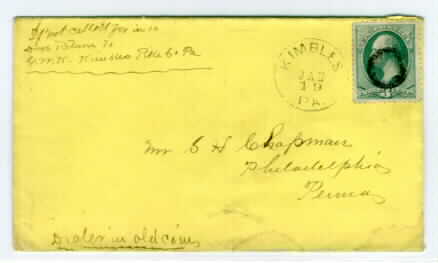 If not called for in 10
days Return to
Kimbles Pike Co Pa
KIMBLES
JAN
19
PA.
Mr C H Chapman
Philadelphia
Penna
Dealer in old coins